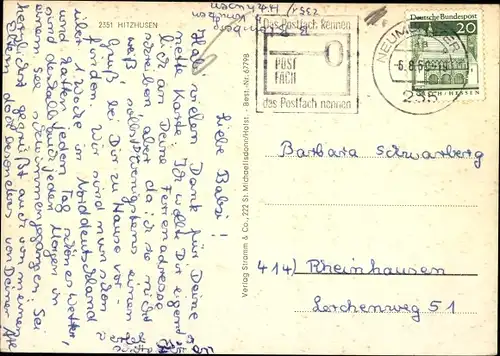 2351 HITZHUSEN
Liebe Babsi!
Hab vielen Dank für Deine
nette Karte. Ich wollte Dir
lich an Deine Ferienadresse
schreiben aber da ich sie nicht
weiß
Gruß bei Dir zu Hause vor-
finden. Wir sind nun schon
über 1 Woche in Norddeutschland
und hatten jeden Tag schönes Wetter,
sind deshalb auch jeden Morgen in
einem See schwimmen gegangen. Sei
herzlichst gegrüßt auch von meinen
Eltern doch besonders von Deiner
Verlag Stramm & Co., 222 St. Michaelisdonn/Holst. · Best.-Nr. 67798
Das Postfach kennen
POST
FACH
das Postfach nennen
-6.8.69
235
Deutsche Bundespost
20
LORSCH/HESSEN
Barbara Schwarberg
414) Rheinhausen
Lerchenweg 51